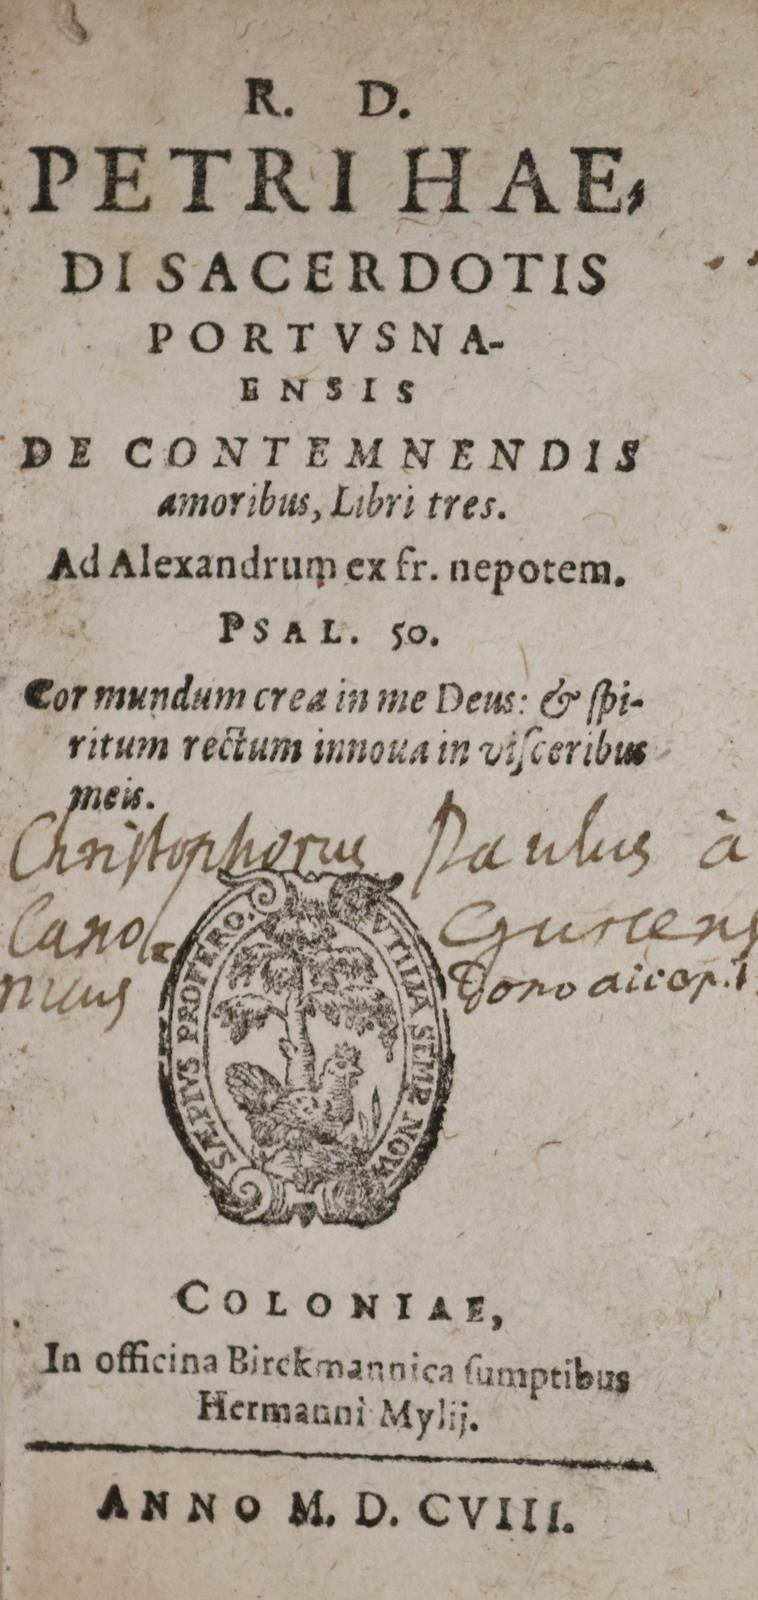 R. D.
PETRI HAE,
DI SACERDOTIS
PORTVSNA-
ENSIS
DE CONTEMNENDIS
amoribus, Libri tres.
Ad Alexandrum ex fr. nepotem.
PSAL. 50.
Cor mundum crea in me Deus: & ſpi-
ritum rectum innoua in viſceribus
meis.
Christophorus Paulus à
Cano
nicus Dono
SÆPIVS PROFERO. VTILIA SEMP. NOVA
COLONIAE,
In officina Birckmannica ſumptibus
Hermanni Mylij.
ANNO M. D. CVIII.